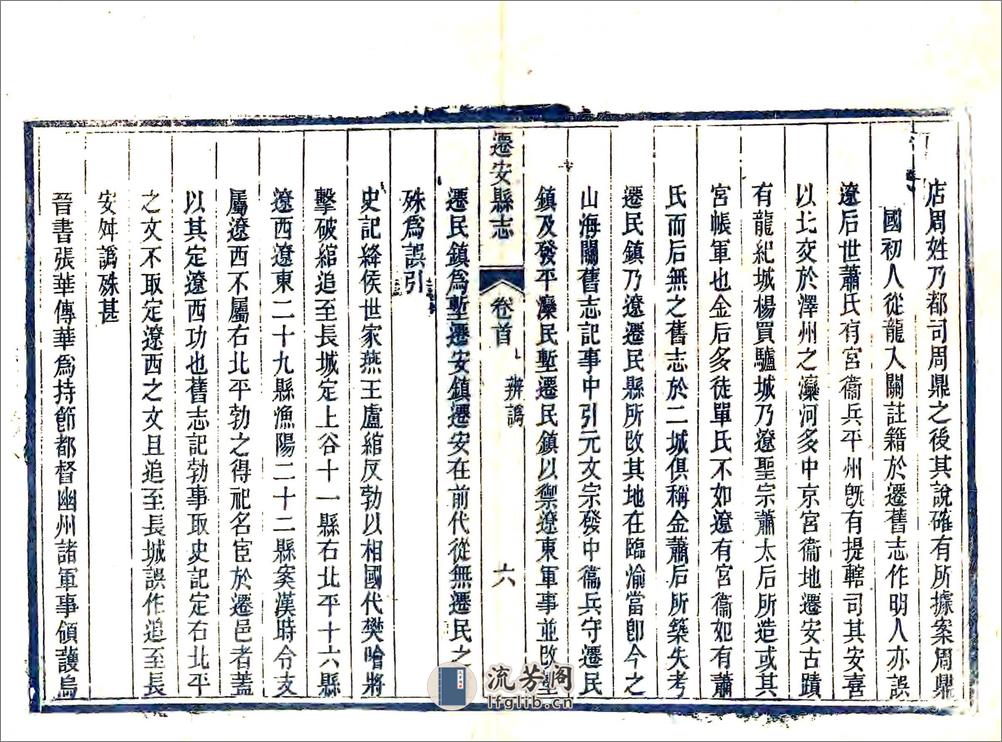 店周姓乃都司周鼎之後其說確有所據案周鼎
國初人從龍入關註籍於遷舊志作明人亦誤
遼后世蕭氏有宮衞兵平州旣有提轄司其安喜
以北交於澤州之灤河多中京宮衞地遷安古蹟
有龍紀城楊買驢城乃遼聖宗蕭太后所造或其
宮帳軍也金后多徒單氏不如遼有宮衞如有蕭
氏而后無之舊志於二城俱稱金蕭后所築失考
遷民鎮乃遼遷民縣所改其地在臨渝當卽今之
山海關舊志記事中引元文宗發中衞兵守遷民
鎮及發平灤民塹遷民鎮以禦遼東軍事並改塹
遷安縣志
卷首
辨譌
六
遷民鎮爲塹遷安鎮遷安在前代從無遷民之
殊爲誤引
史記絳侯世家燕王盧綰反勃以相國代樊噲將
擊破綰追至長城定上谷十一縣右北平十六縣
遼西遼東二十九縣漁陽二十二縣案漢時令支
屬遼西不屬右北平勃之得祀名宦於遷邑者蓋
以其定遼西功也舊志記勃事取史記定右北平
之文不取定遼西之文且追至長城誤作追至長
安舛譌殊甚
晉書張華傳華爲持節都督幽州諸軍事領護烏
流芳阁
lfglib.cn